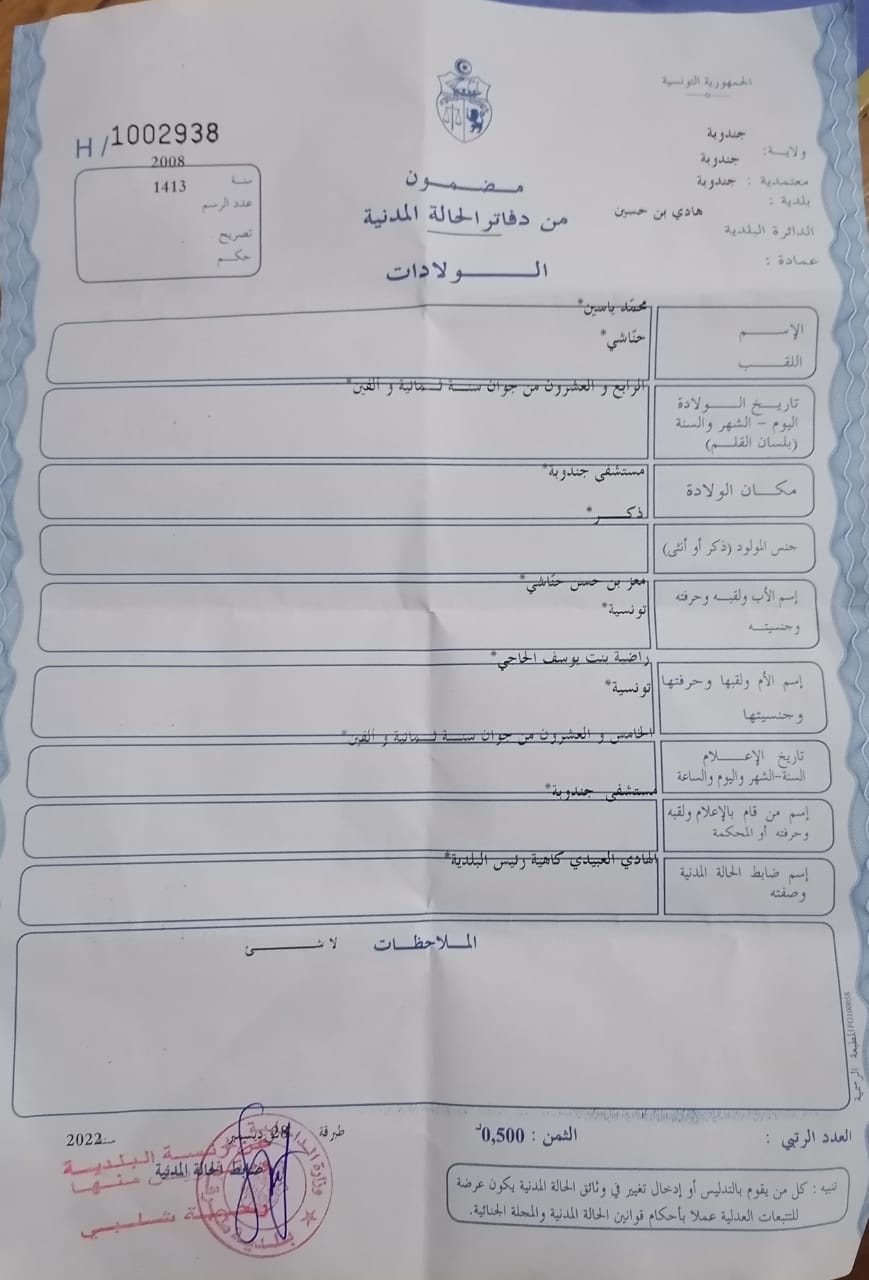 الجمهورية التونسية
جندوبة
ولاية:
جندوبة
معتمدية : جندوبة
بلدية :
هادي بن حسين
الدائرة البلدية
عمادة :
H/1002938
2008
سنة
1413
عدد الرسم
تصريح
حكم
مضمون
من دفاتر الحالة المدنية
الولادات
محمّد ياسين*
الإسم
حنّاشي*
اللقب
الرابع و العشرون من جوان سنة ثمانية و ألفين*
تاريخ الولادة
اليوم - الشهر والسنة
(بلسان القلم)
مستشفى جندوبة*
مكان الولادة
ذكر*
جنس المولود (ذكر أو أنثى)
معز بن حسن حنّاشي*
إسم الأب ولقبه وحرفته
تونسية*
وجنسيته
راضية بنت يوسف الحاجي*
إسم الأم ولقبها وحرفتها
تونسية*
وجنسيتها
الخامس و العشرون من جوان سنة ثمانية و ألفين*
تاريخ الإعلام
السنة-الشهر واليوم والساعة
مستشفى جندوبة*
إسم من قام بالإعلام ولقبه
وحرفته أو المحكمة
الهادي العبيدي كاهية رئيس البلدية*
إسم ضابط الحالة المدنية
وصفته
الملاحظات
لا شئ
المطبعة الرسمية
العدد الرتبي :
الثمن : 0,500د
طبرقة
ديسمبر
سنة 2022
ضابط الحالة المدنية
تنبيه : كل من يقوم بالتدليس أو إدخال تغيير في وثائق الحالة المدنية يكون عرضة
للتبعات العدلية عملا بأحكام قوانين الحالة المدنية والمجلة الجنائية.